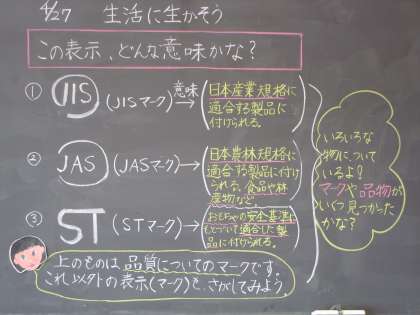 4/27 生活に生かそう
この表示、どんな意味かな?
① JIS (JISマーク) 意味→ 日本産業規格に
適合する製品に
付けられる。
② JAS (JASマーク)→ 日本農林規格に
適合する製品に付け
られる。食品や林
産物など。
③ ST (STマーク)→ おもちゃの安全基準に
もとづいて適合した製
品に付けられる。
いろいろな
物について
いるよ!
マークや品物が
いくつ見つかった
かな?
上のものは品質についてのマークです。
これ以外の表示(マーク)も、さがしてみよう。